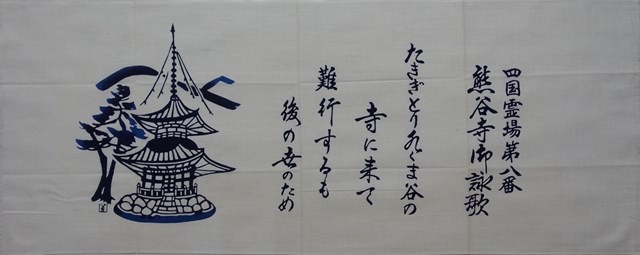 四国霊場第八番
熊谷寺御詠歌
たきぎとり水くま谷の
寺に来て
難行するも
後の世のため